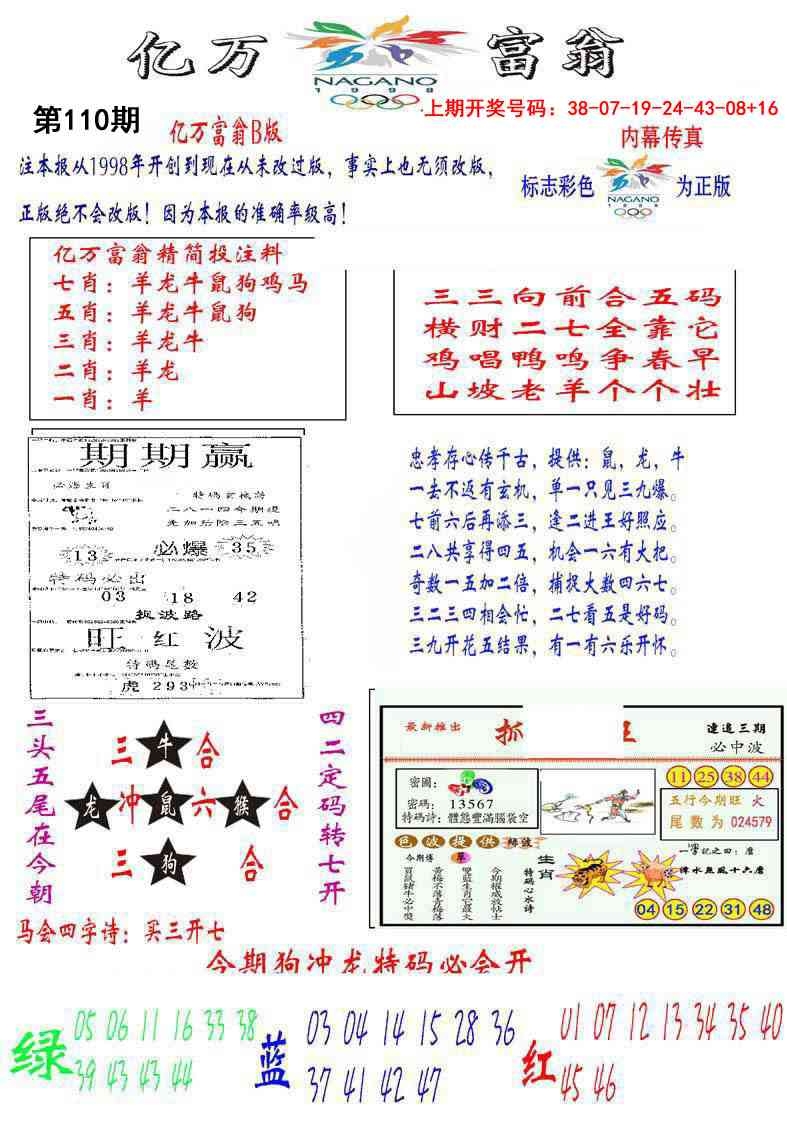 亿万富翁
NAGANO
1998
第110期
亿万富翁B版
上期开奖号码：38-07-19-24-43-08+16
内幕传真
注本报从1998年开创到现在从未改过版，事实上也无须改版，
正版绝不会改版！因为本报的准确率级高！
标志彩色
NAGANO
1998
为正版
亿万富翁精简投注料
七肖：羊龙牛鼠狗鸡马
五肖：羊龙牛鼠狗
三肖：羊龙牛
二肖：羊龙
一肖：羊
三三向前合五码
横财二七全靠它
鸡唱鸭鸣争春早
山坡老羊个个壮
期期赢
必爆
13
35
特码必出
03 18 42
捉波路
旺红波
特码尾数
虎293
忠孝存心传千古，提供：鼠，龙，牛
一去不返有玄机，单一只见三九爆。
七前六后再添三，逢二进王好照应。
二八共享得四五，机会一六有火把。
奇数一五加二倍，捕捉大数四六七。
三二三四相会忙，二七看五是好码。
三九开花五结果，有一有六乐开怀。
三头五尾在今朝
三牛合
龙冲鼠六猴合
三狗合
四二定码转七开
马会四字诗：买三开七
最新推出
抓
連追三期
必中波
密圖：
密碼：13567
特碼詩：體態豐滿腦袋空
11 25 38 44
五行今期旺 火
尾數为 024579
色波提供 綠波
生肖
特碼心水詩
04 15 22 31 48
今期狗冲龙特码必会开
绿
05 06 11 16 33 38
39 43 43 44
蓝
03 04 14 15 28 36
37 41 42 47
红
01 07 12 13 34 35 40
45 46